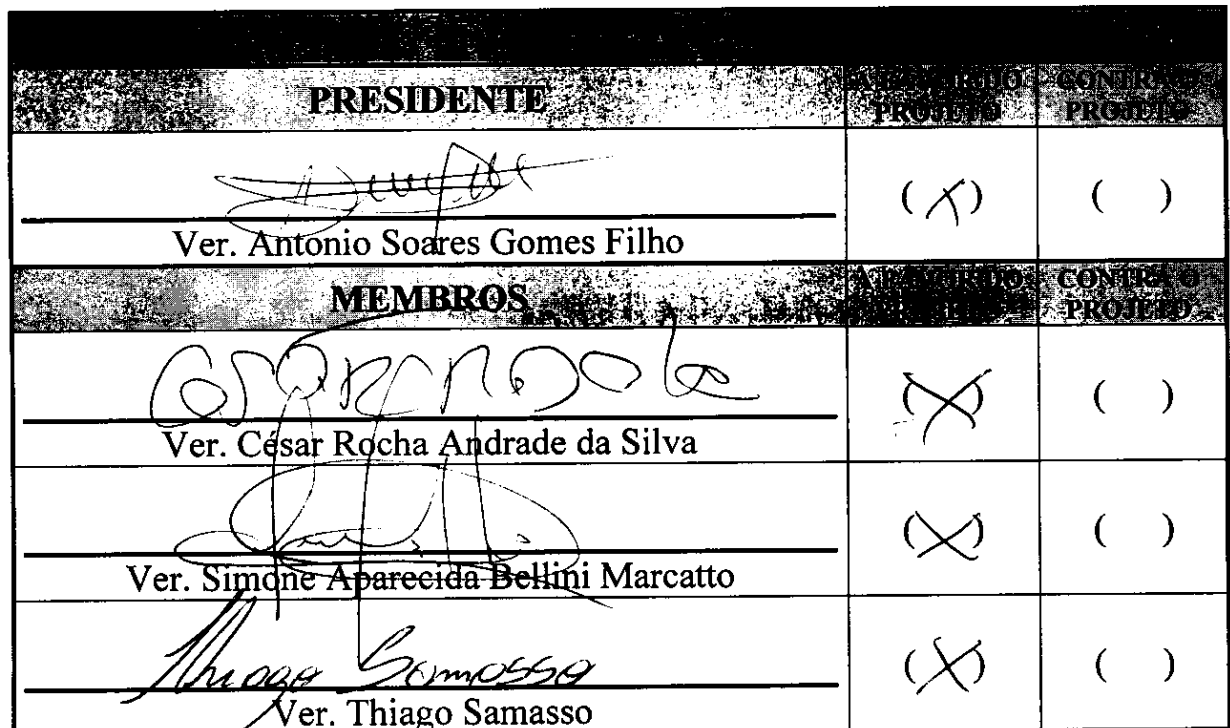 PRESIDENTE
A FAVOR DO PROJETO
CONTRA O PROJETO
( X )
( )
Ver. Antonio Soares Gomes Filho
MEMBROS
A FAVOR DO
CONTRA O PROJETO
( X )
( )
Ver. César Rocha Andrade da Silva
( X )
( )
Ver. Simone Aparecida Bellini Marcatto
Thiago Samasso
( X )
( )
Ver. Thiago Samasso